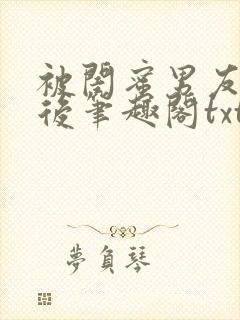 被閨蜜男友
後筆趣閣txt
夢負琴